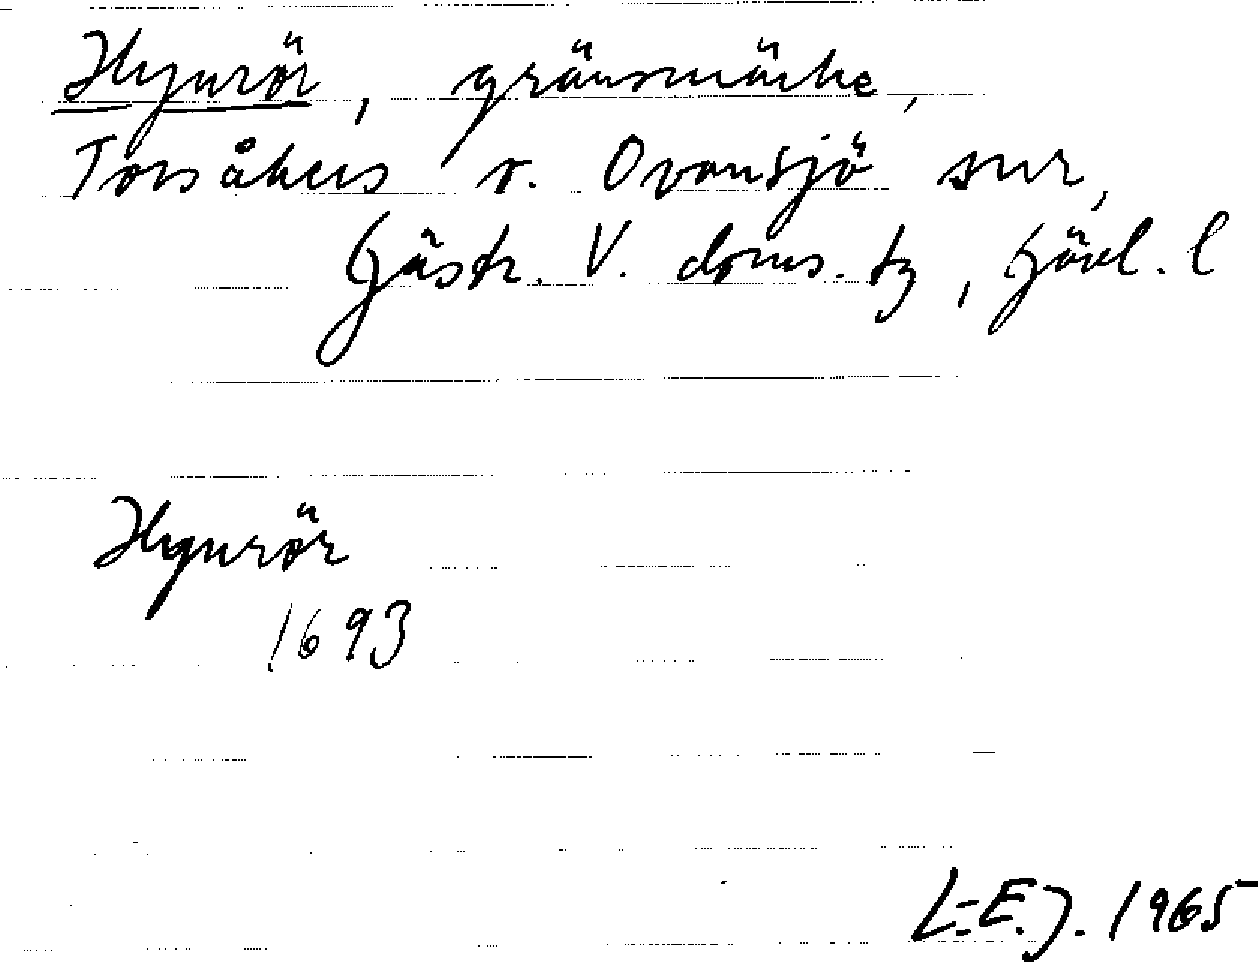 Hynrör, gränsmärke,
Torsåkers o. Ovansjö snr,
Gästr. V. doms. tg, Gävl. l
Hynrör
1693
L-E.J. 1965